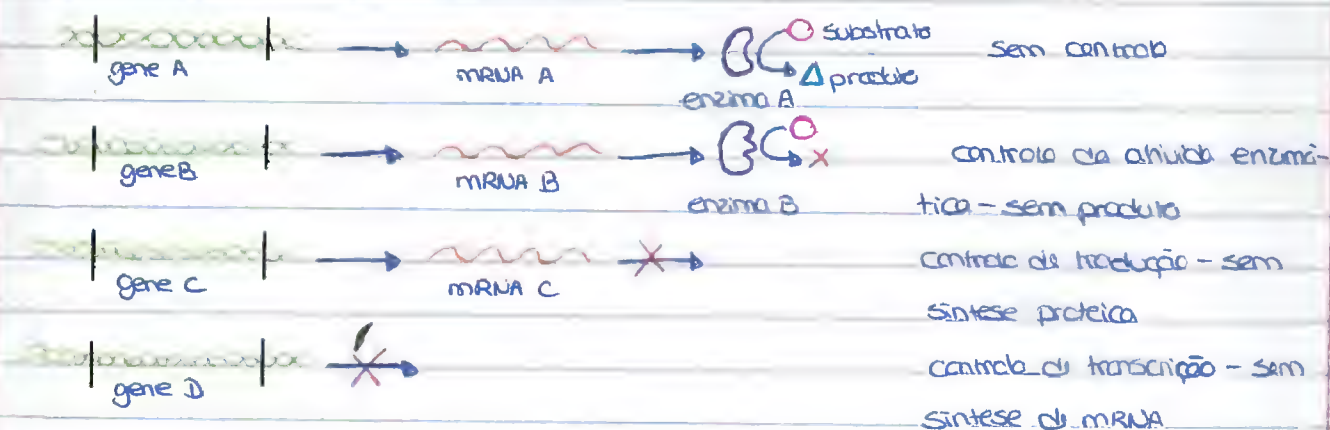 substrato
gene A mRNA A enzima A produto sem controlo
gene B mRNA B enzima B controlo da ativida enzimá-
tica - sem produto
gene C mRNA C controlo de tradução - sem
síntese proteica
gene D controlo de transcrição - sem
síntese de mRNA